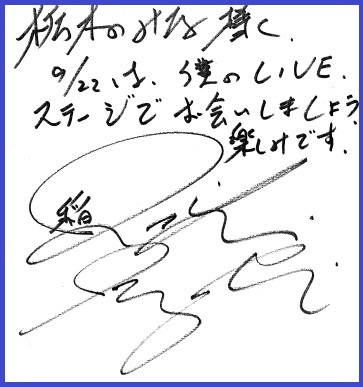 栃木のみな様へ
9/22は、僕のLIVE.
ステージでお会いしましょう.
楽しみです.